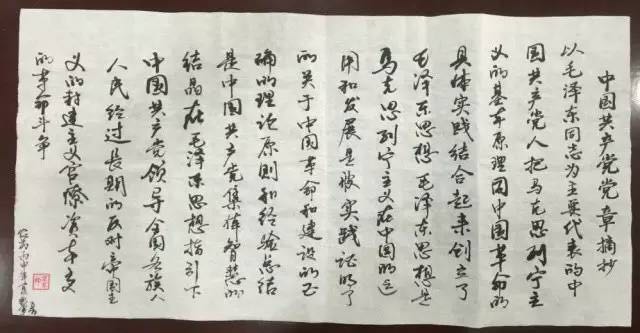 中国共产党党章摘抄
以毛泽东同志为主要代表的中
国共产党人把马克思列宁主
义的基本原理同中国革命的
具体实践结合起来创立了
毛泽东思想毛泽东思想是
马克思列宁主义在中国的运
用和发展是被实践证明了
的关于中国革命和建设的正
确的理论原则和经验总结
是中国共产党集体智慧的
结晶在毛泽东思想指引下
中国共产党领导全国各族人
人民经过长期的反对帝国主
义的封建主义官僚资本主义
的革命斗争